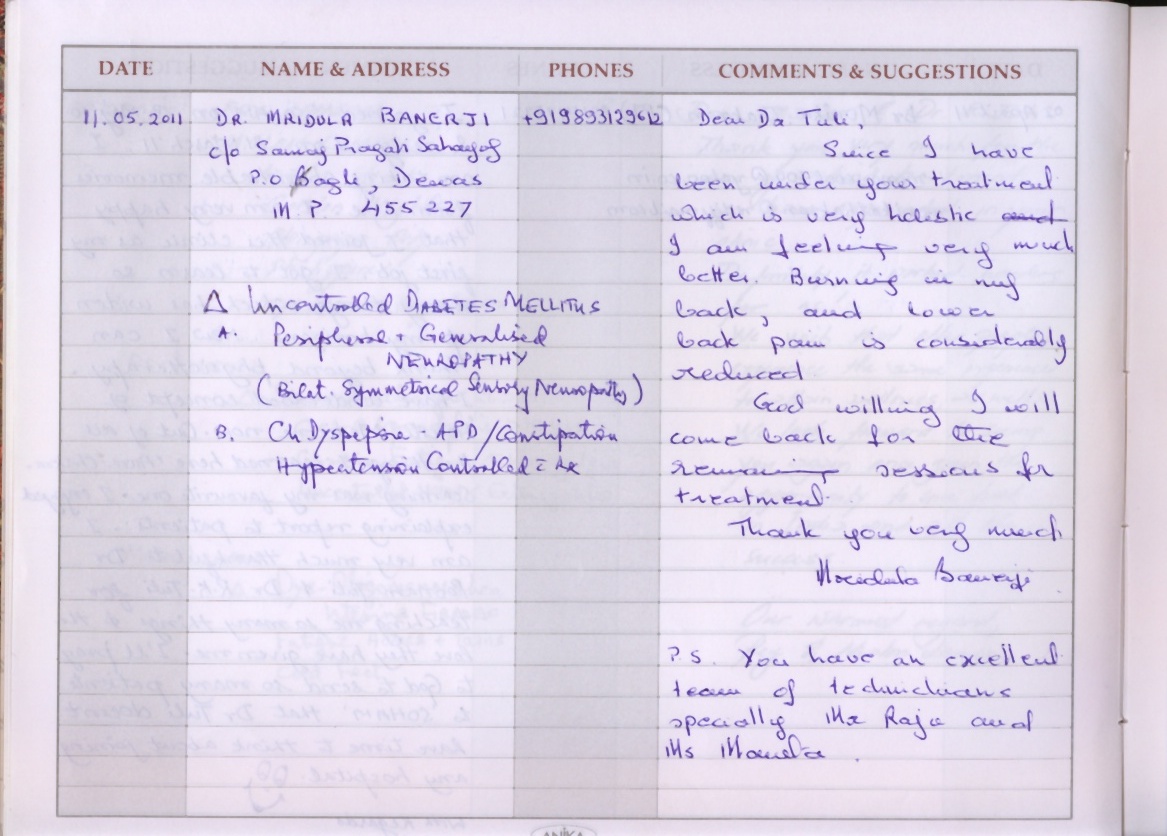 DATE NAME & ADDRESS PHONES COMMENTS & SUGGESTIONS
11.05.2011 DR. MRIDULA BANERJI +919893129612 Dear Dr Tuli,
c/o Samaj Pragati Sahayog
P.O Bagli, Dewas
M.P. 455 227
Since I have
been under your treatment
which is very holistic and
I am feeling very much
better. Burning in my
back, and lower
back pain is considerably
reduced
God willing I will
come back for the
remaining sessions for
treatment.
Thank you very much
Mridula Banerji
P.S. You have an excellent
team of technicians
specially Mr Raju and
Ms Mamta.
Δ Uncontrolled DIABETES MELLITUS
A. Peripheral + Generalised
NEUROPATHY
(Bilat. Symmetrical Sensory Neuropathy)
B. Ch. Dyspepsia APD/Constipation
Hypertension Controlled
ANIKA